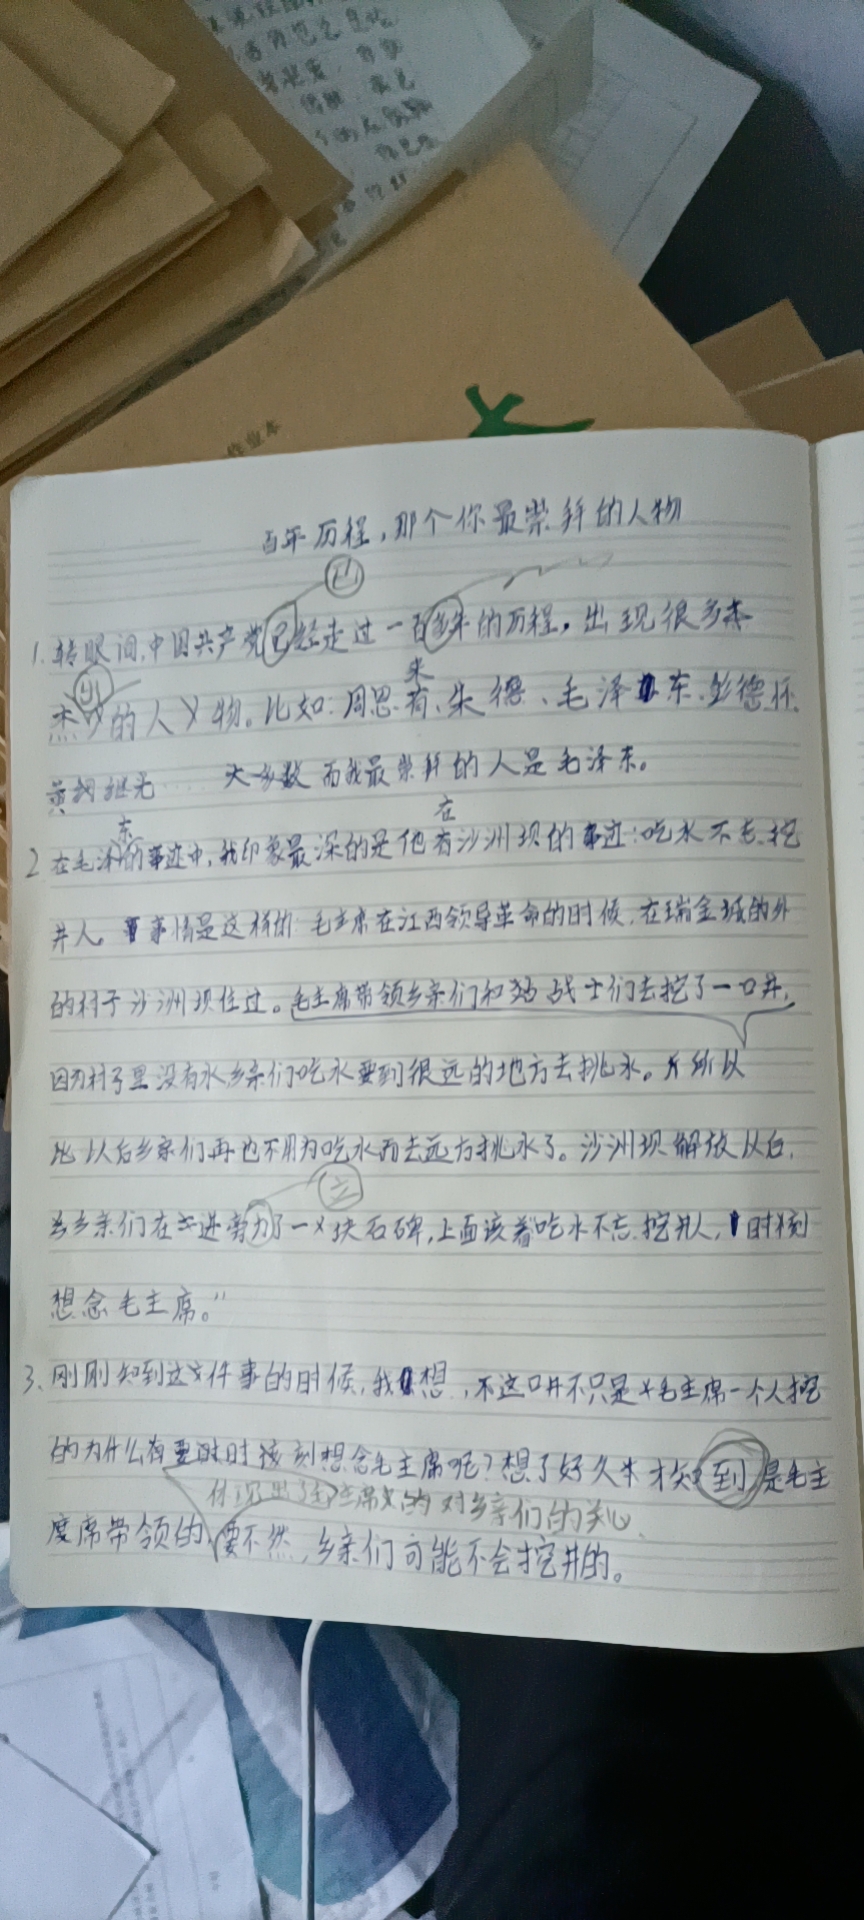 作业本
百年历程，那个你最崇拜的人物
1. 转眼间,中国共产党已经走过一百多年的历程，出现很多杰
杰出的人物。比如：周恩来、朱德、毛泽东、彭德怀、
黄继光…… 大多数 而我最崇拜的人是毛泽东。
2 在毛泽东的事迹中，我印象最深的是他在沙洲坝的事迹：吃水不忘挖
井人。事情是这样的：毛主席在江西领导革命的时候，在瑞金城的外
的村子沙洲坝住过。毛主席带领乡亲们和 战士们去挖了一口井，
因为村子里没有水乡亲们吃水要到很远的地方去挑水。所以
比以后乡亲们再也不用为吃水而去远方挑水了。沙洲坝解放以后，
乡亲们在井边旁立了一块石碑，上面该着“吃水不忘挖井人，时刻
想念毛主席。”
3、刚刚知到这件事的时候，我想，不这口井不只是毛主席一个人挖
的为什么有要时时刻刻想念毛主席呢？想了好久才知到是毛主
体现出了毛主席的对乡亲们的关心
席带领的，要不然，乡亲们可能不会挖井的。